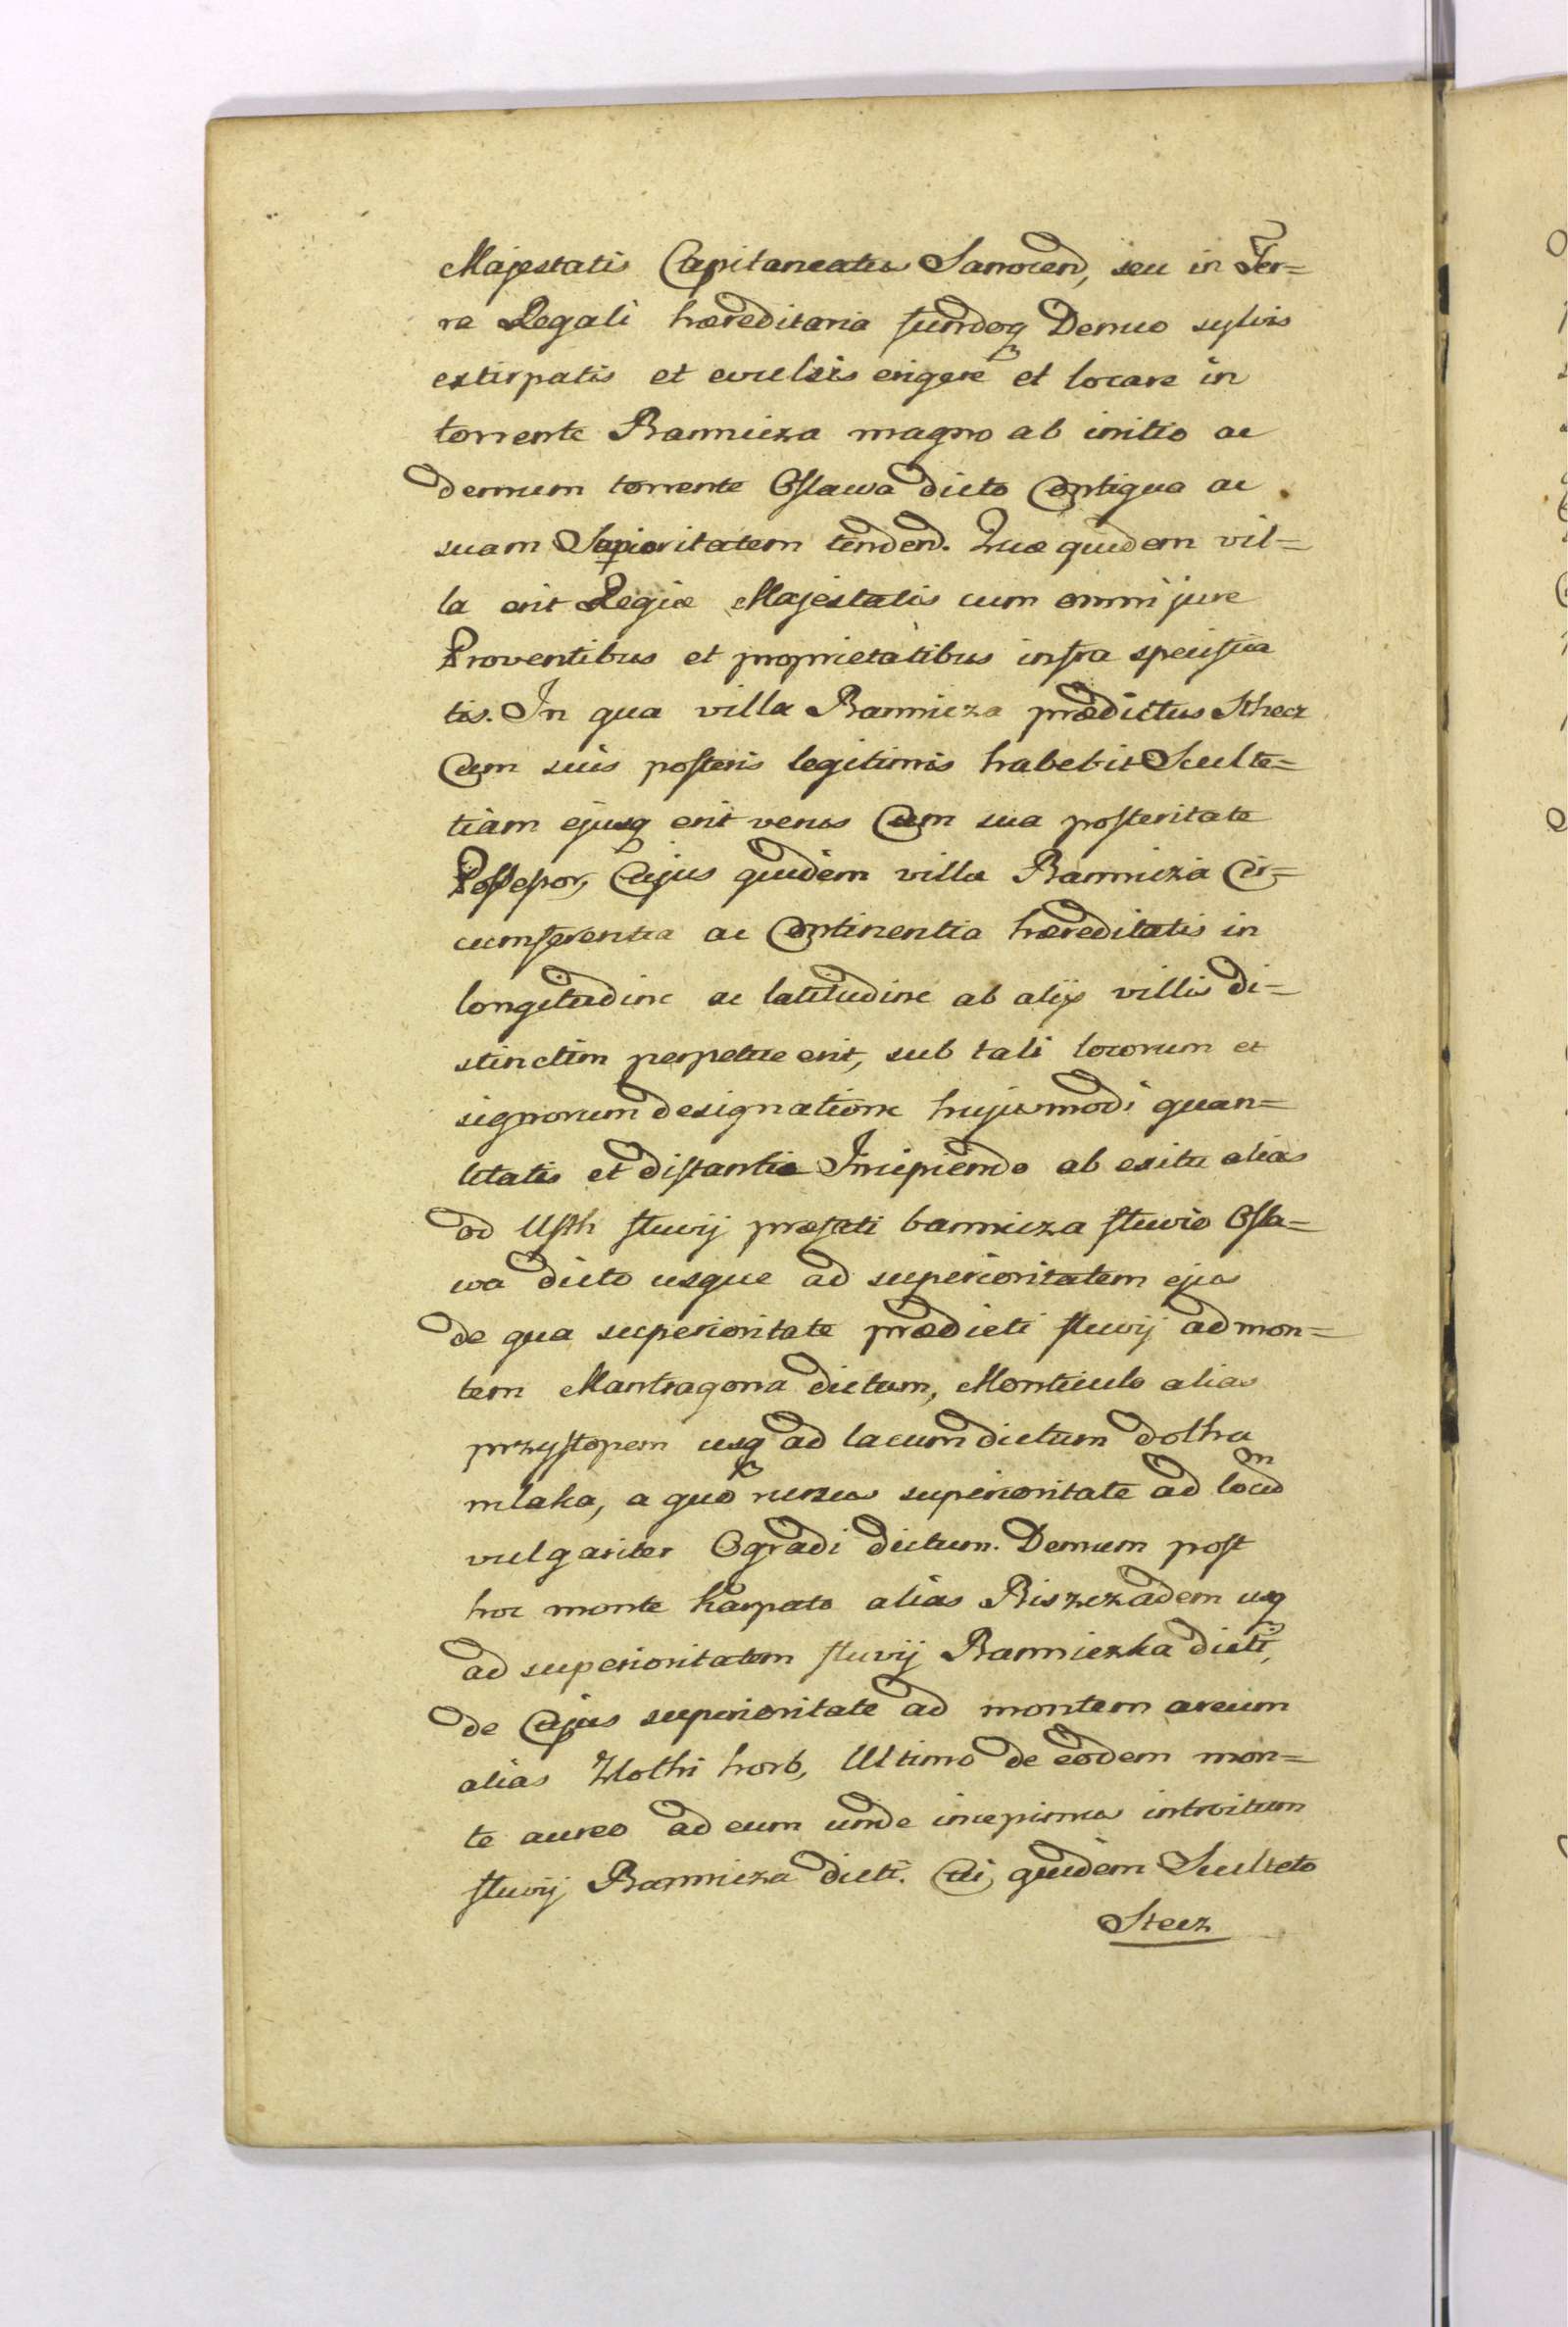 Majestatis Capitaneatus Sanocen, seu in Ter=
ra Regali hæreditaria fundoq Denuo sylvis
extirpatis et evulsis erigere et locare in
torrente Bannicza magno ab initio ac
demum torrente Osława dicto Contiguo ac
suam Sup̱ioritatem tenden̄. Quæ quidem vil=
la erit Regiæ Majestatis cum omni jure
Proventibus et proprietatibus infra specifica
tis. In qua villa Bannicza prædictus Sthecz
Cum suis posteris legitimis habebit Sculte=
tiam ejusq erit verus Cum sua posteritate
Possessor, Cujus quidem villa Bannicza Cir=
cumferentia ac Continentia hæreditatis in
longitudine ac latitudine ab alijs villis di=
stinctim perpetue erit, sub tali locorum et
signorum designatione hujusmodi quan=
titatis et distantia Incipiendo ab exitu alias
od Usth fluvij præfati bannicza fluvio Osła=
wa dicto usque ad superioritatem ejus
de qua superioritate prædicti fluvij ad mon=
tem Mantragona dictum, Monticulo alias
przystopem usq ad lacum dictum dolha
mlaka, a quo rursus superioritate ad locum
vulgariter Ogradi dictum. Demum post
hoc monte Karpato alias Biszczadem usq
ad superioritatem fluvij Banniczka dicti,
de Cujus superioritate ad montem areum
alias Złothi horb, Ultimo de eodem mon=
te aureo ad eum unde incepimus introitum
fluvij Bannicza dicti. Cui quidem Sculteto
Stecz